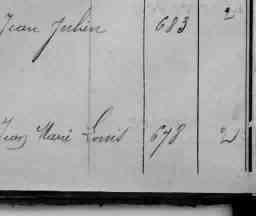 Jean Julien 683 2
Jean Marie Louis 678 2